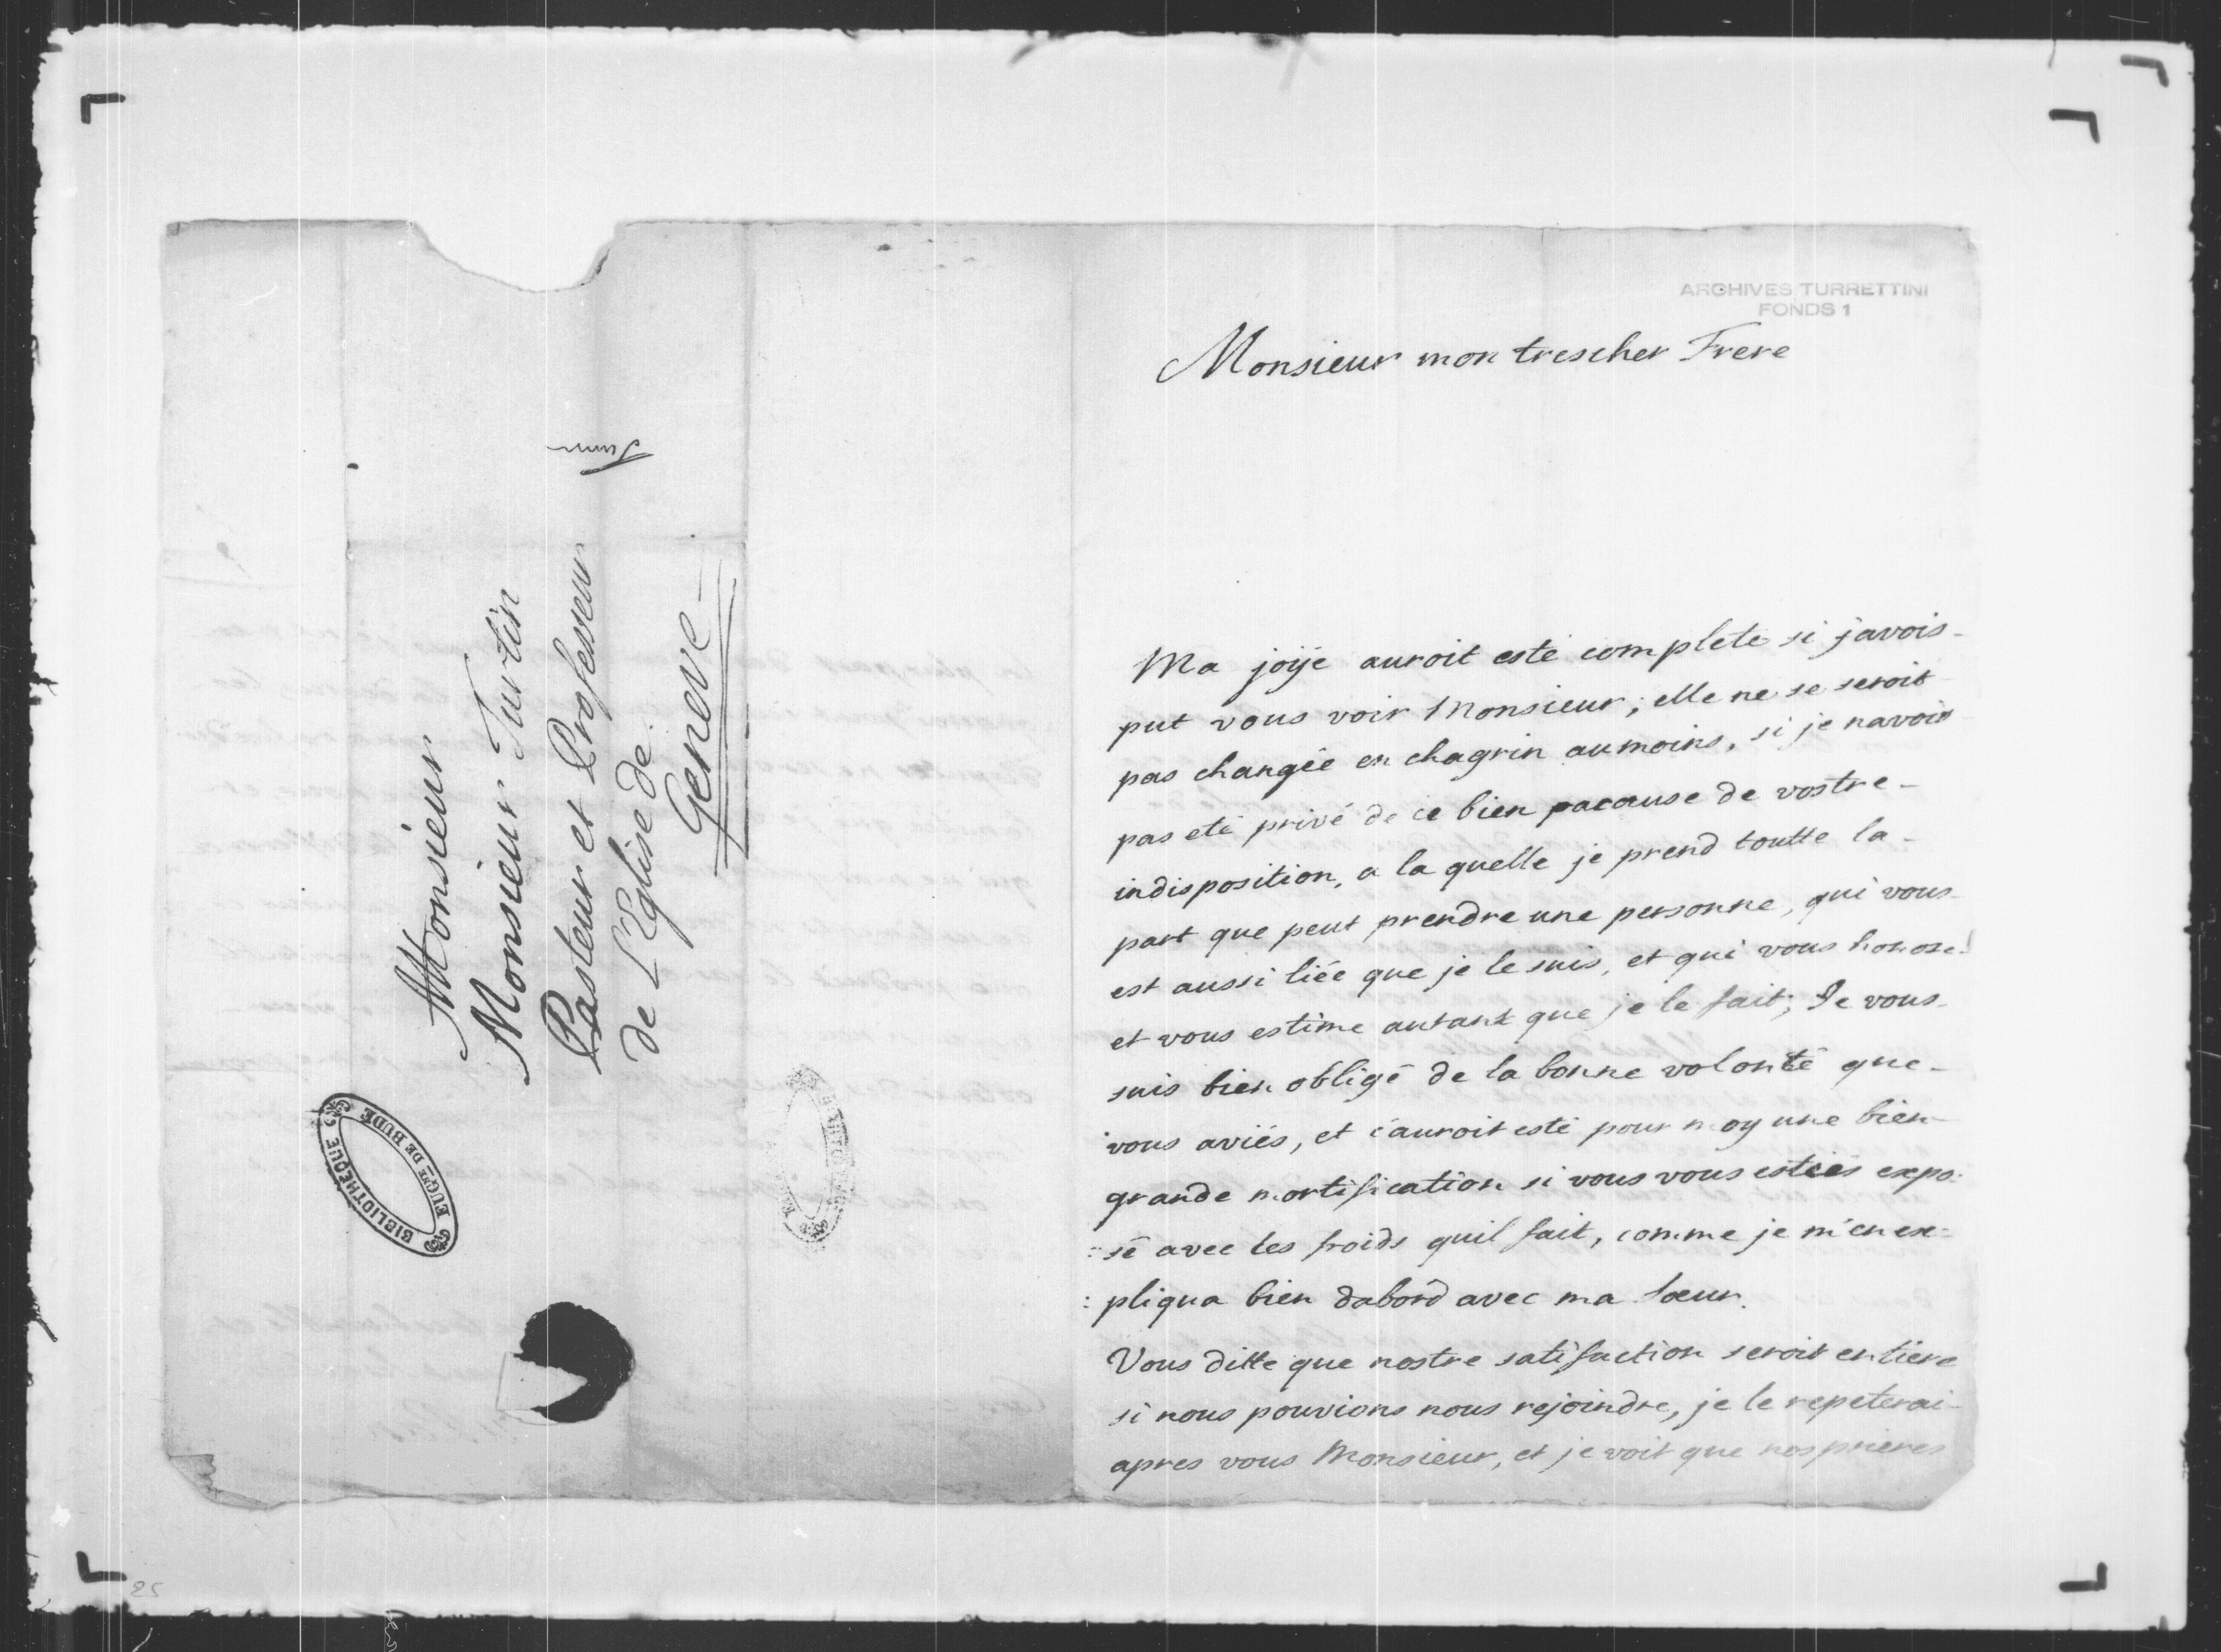 Monsieur
Monsieur Turtin
Pasteur et Professeur
de L'Eglise de
Geneve
BIBLIOTHÈQUE
EUGNE DE BUDÉ
ARCHIVES TURRETTINI
FONDS 1
Monsieur mon trescher Frere
Ma joÿe auroit esté complete si javois
put vous voir Monsieur; elle ne se seroit
pas changée en chagrin aumoins, si je navois
pas eté privé de ce bien pacause de vostre
indisposition, a la quelle je prend toutte la
part que peut prendre une personne, qui vous
est aussi liée que je le suis, et qui vous honore
et vous estime autant que je le fait; Je vous
suis bien obligé de la bonne volonté que
vous aviés, et c'auroit esté pour moy une bien
grande mortification si vous vous estiés expo:
:sé avec les froids quil fait, comme je m'en ex:
:pliqua bien dabord avec ma Sœur.
Vous ditte que nostre satisfaction seroit entiere
si nous pouvions nous rejoindre, je le repeterai
apres vous Monsieur, et je voit que nos prieres
25